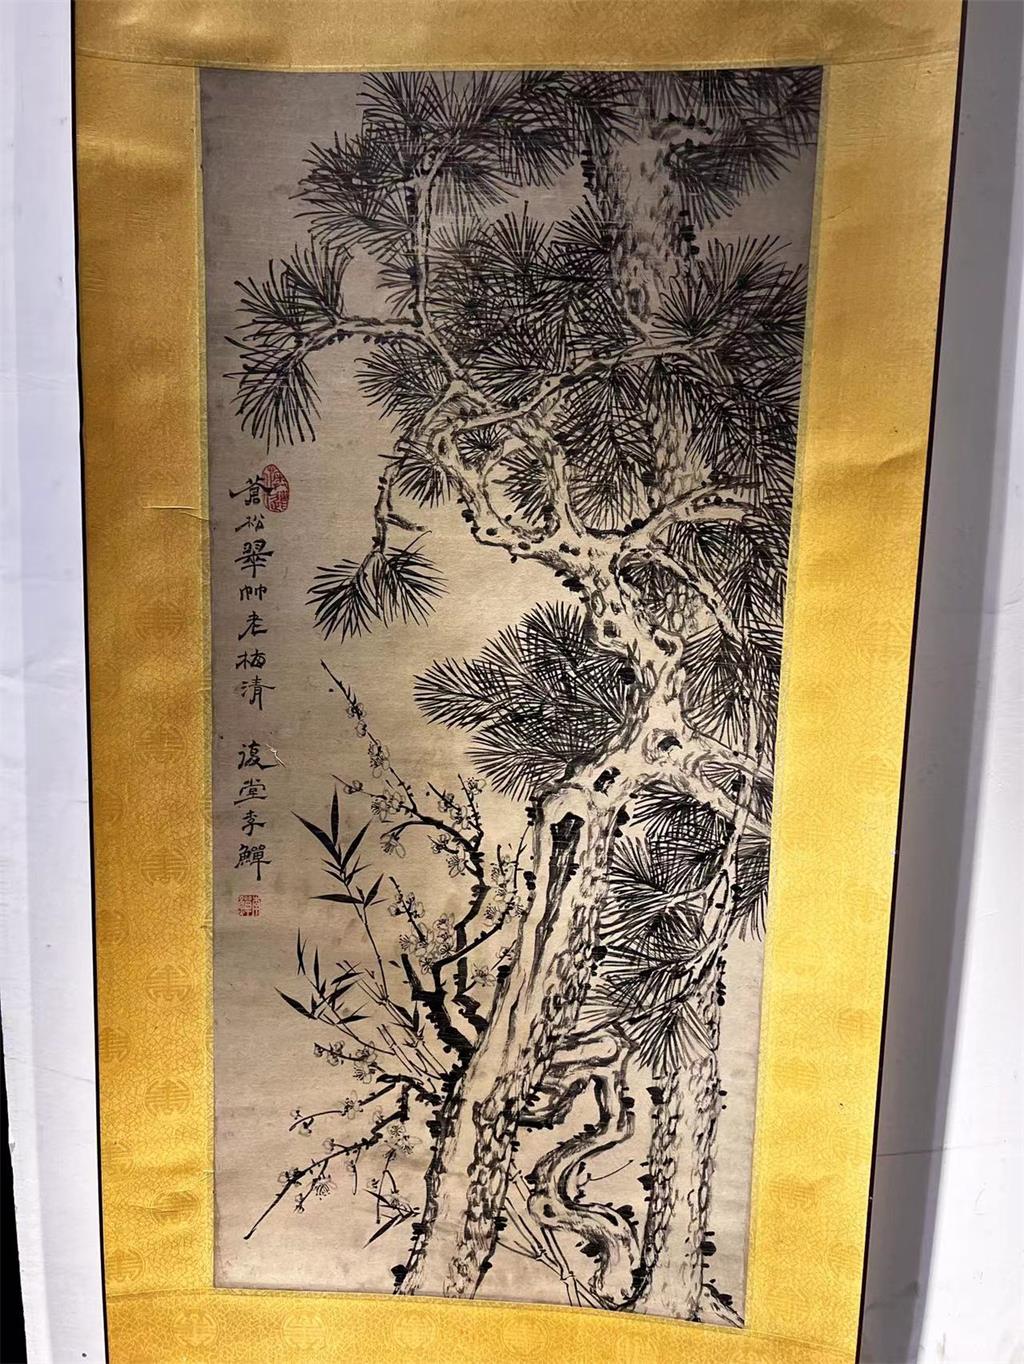 蒼松翠竹老梅清
復堂李鱓